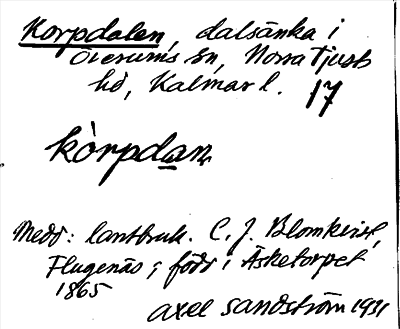 Korpdalen, dalsänka i
Överums sn, Norra Tjusts
hd, Kalmar l. 17
kòrpdan
Medd: lantbruk. C. J. Blomkvist,
Flugenäs; född i Äsketorpet
1865
Axel Sandström 1931